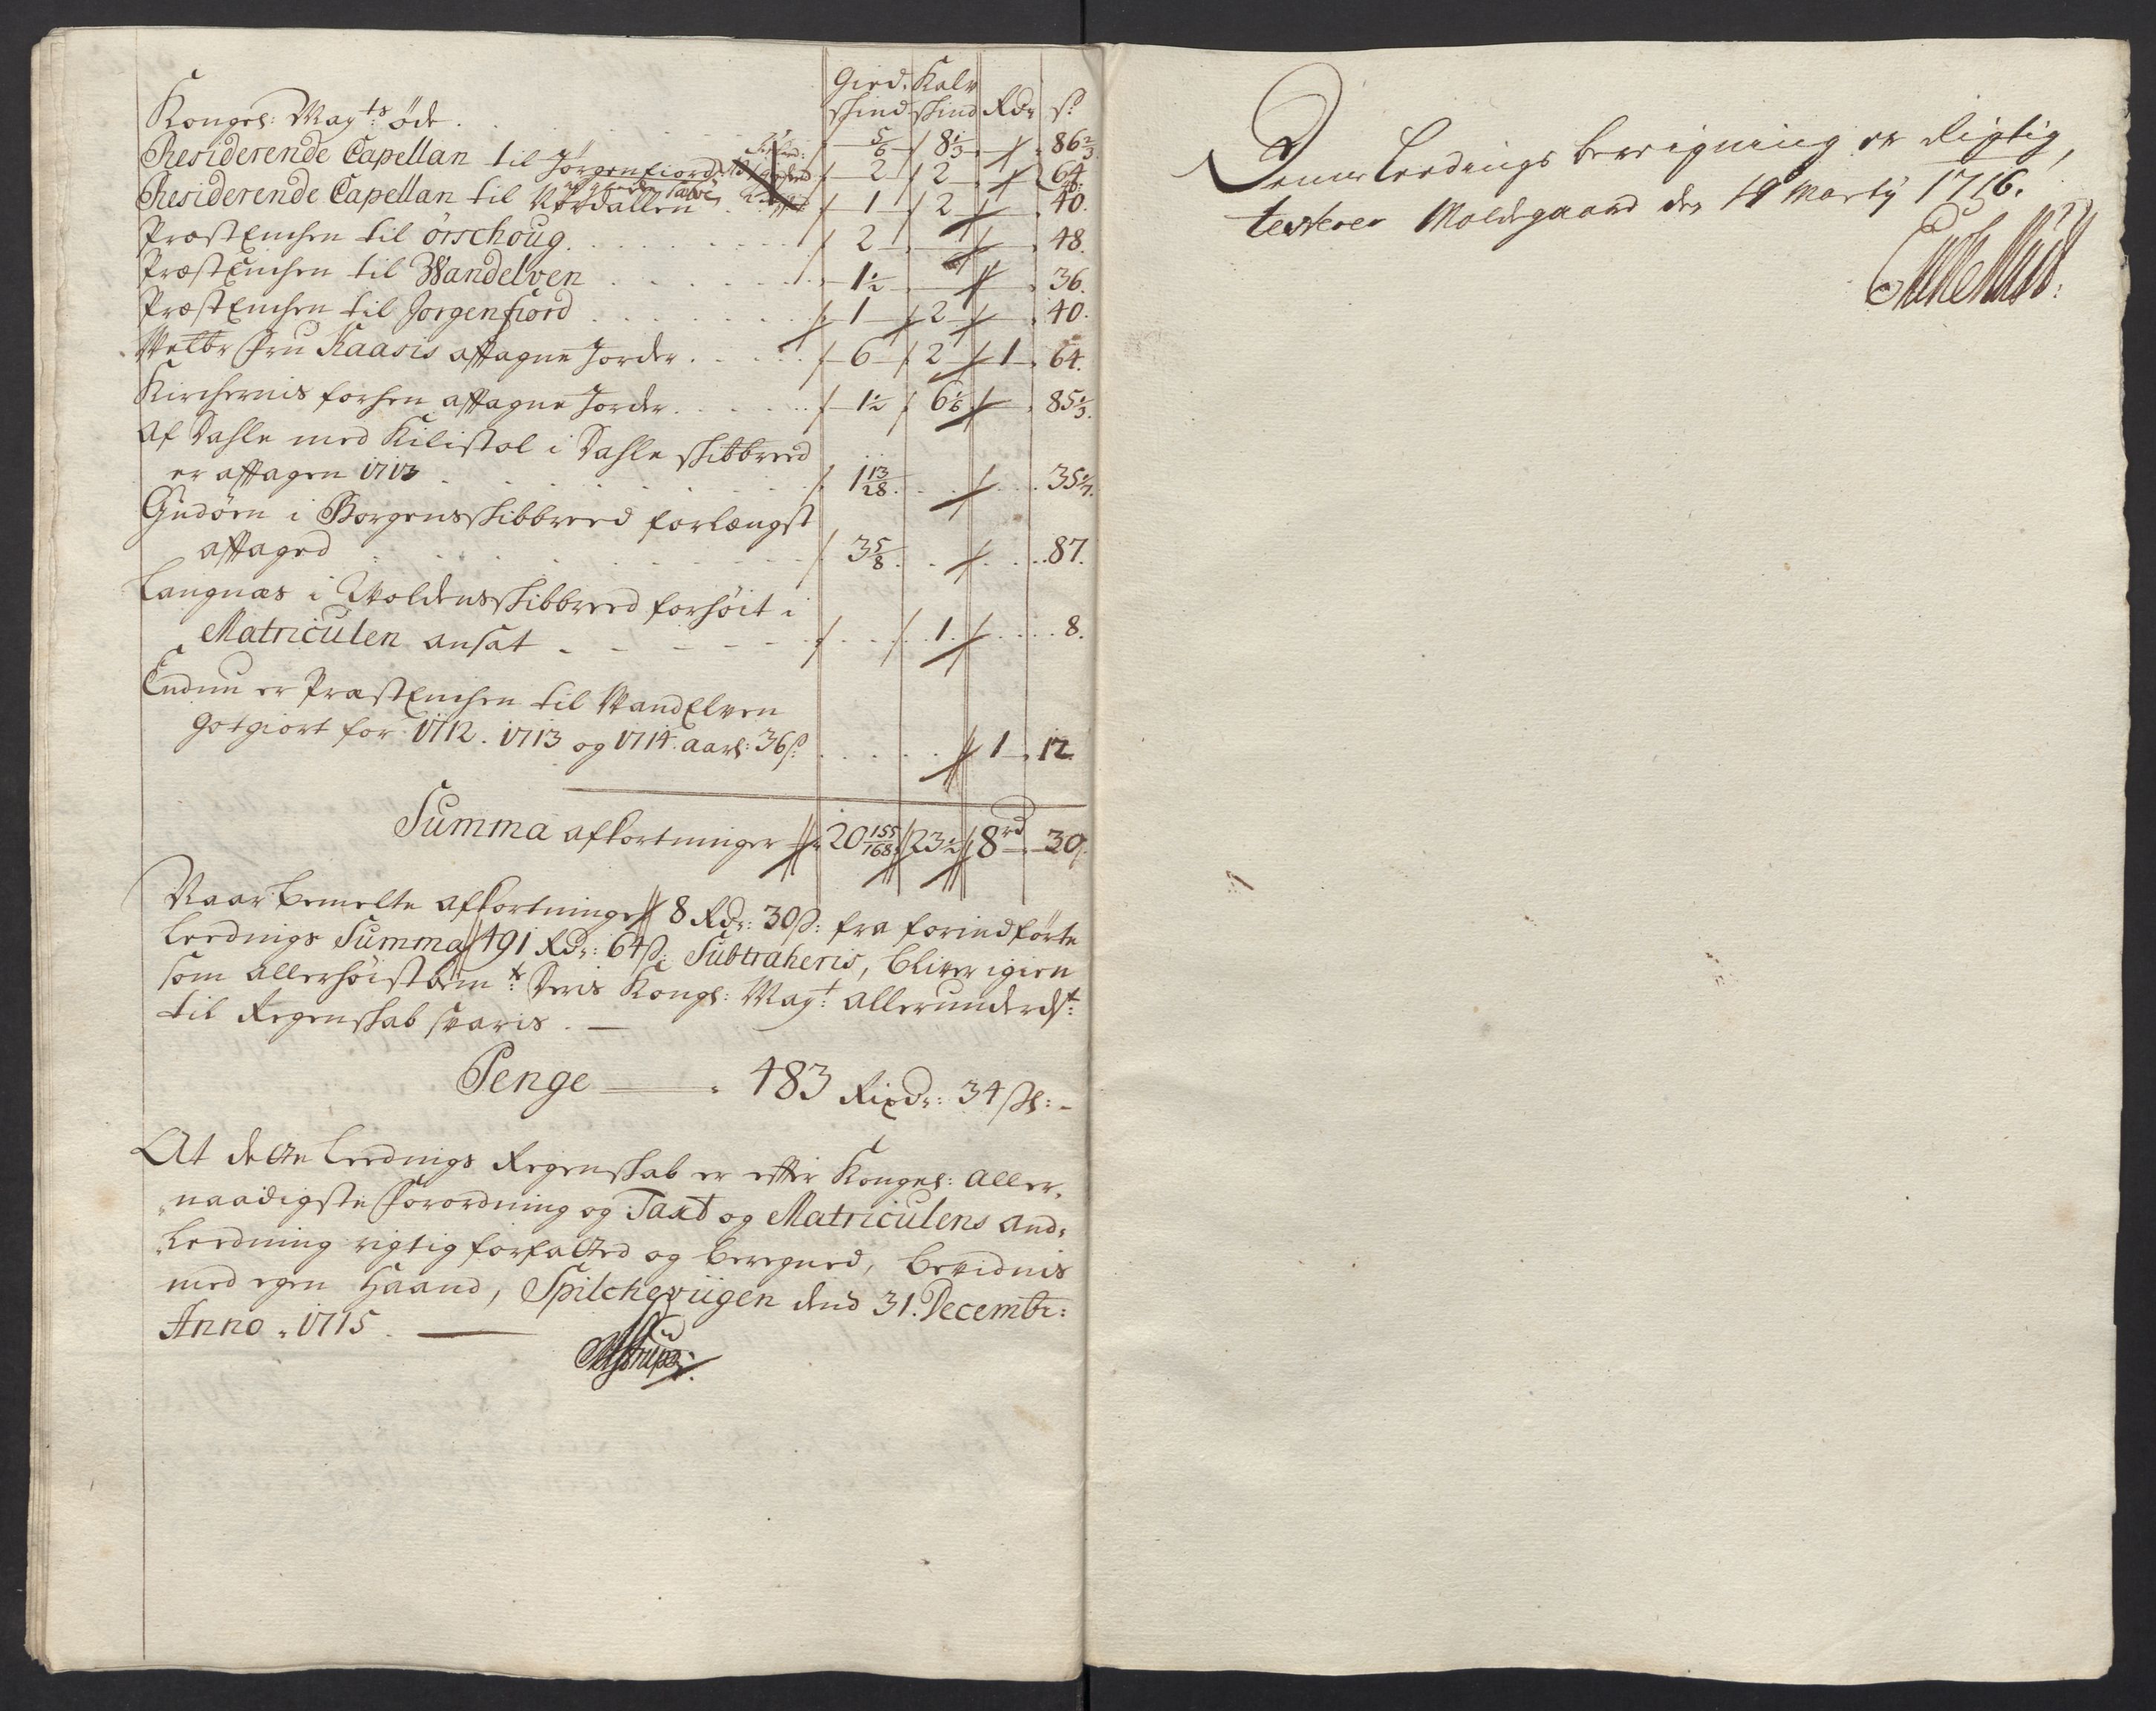 Gied. Kalv
skind skind Rdr ß
Kongel: May:ts öde . . 5/6 8 1/3 86 2/3
Residerende Capellan til Jörgenfiord 2 2 64
Residerende Capellan til Nordallen 1 2 40.
PræstEnchen til örschoug 2 48.
PræstEnchen til Wandelven 1 1/2 36.
PræstEnchen til Jorgenfiord 1 2 40.
Velbr Fru Kaasis afftagne Jorder 6 2 1 64.
Kirchernis forhen afftagne Jorder 1 1/2 6 1/6 85 1/3.
Af Dahle med Kilistol i Dahle skibbreed
er afftagen 1713 1 13/28 35 2/7.
Gudöen i Borgensskibbreed forlængst
afftaged 3 5/8 87.
Langnæs i Woldensskibbreed forhöit i
Matriculen ansat 1 8.
Endnu er PræstEnchen til VandElven
gotgiort for 1712. 1713 og 1714. aarl: 36 ß: 1 12
Summa afkortninger 20 155/168 23 1/2 8 rd 30
Naar bemelte afkortninger 8 Rdr: 30 ß: fra forindförte
Leedings Summa 491 Rdr: 64 ß: Subtraheris, bliver igien
som allerhöistbem:te Deris Kongl: May:t allerunderd:st
til Regenskab svaris.
Penge 483 Rixdr: 34 ßl:
At dette Leedings Regenskab er efter Kongel: aller-
naadigste Forordning og Taxt og Matriculens and-
Leedning rigtig forfatted og beregned, bevidnis
med egen Haand, Spilchevigen dend 31. Decembr:
Anno 1715.
Denne Leedings beregning er Rigtig,
testerer Moldegaard den 19 Marty 1716.